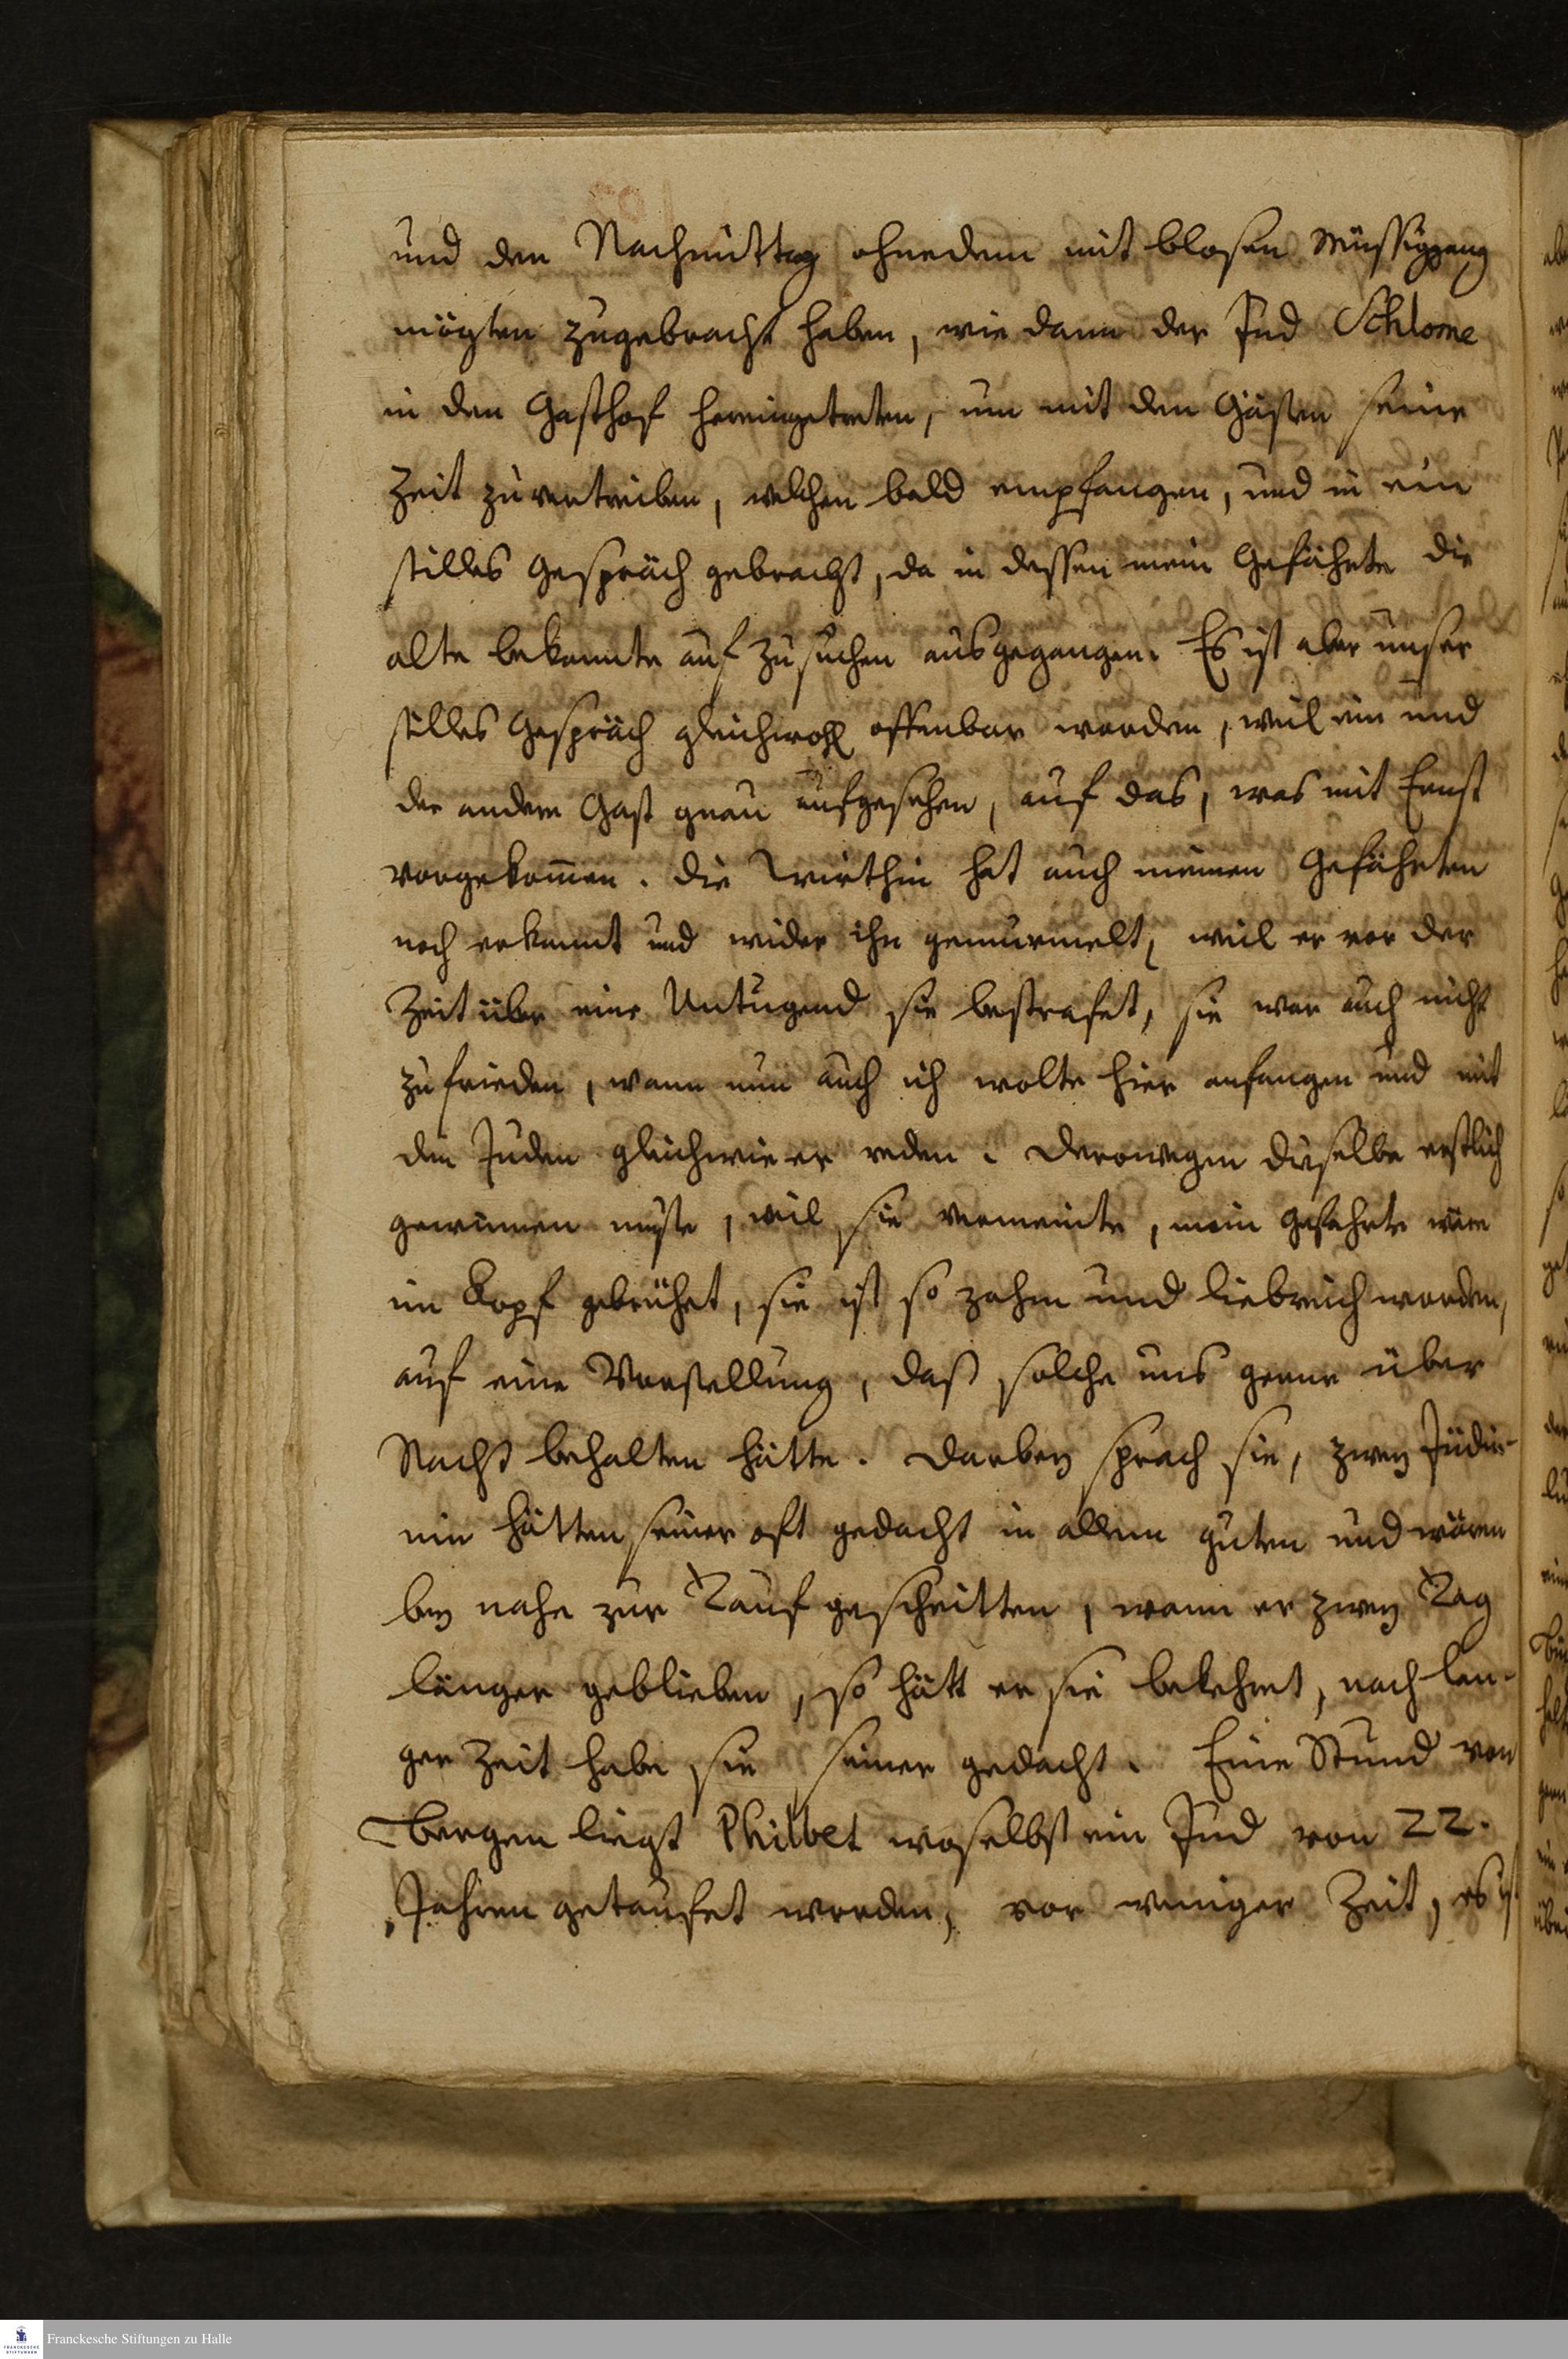 und den Nachmittag ohnedem mit blosen Müssiggang
mögten zugebracht haben, wie dann der Jud Schlome
in den Gasthof hereingetreten, um mit den Gästen seine
Zeit zuvertreiben, welchen bald empfangen, und in ein
stilles Gespräch gebracht, da in dessen mein Gefährte die
alte bekannte auf zusuchen ausgegangen. Es ist aber unser
stilles Gespräch gleichwohl offenbar worden, weil ein und
der andere Gast genau aufgesehen, auf das, was mit Ernst
vorgekom̅en. die Wirthin hat auch meinen Gefährten
noch erkannt und wider ihn gemurmelt, weil er vor der
Zeit über eine Untugend sie bestrafet, sie war auch nicht
zufrieden, wann nun auch ich wolte hier anfangen und mit
den Juden gleichwie er reden. Derowegen dieselbe erstlich
gewinnen muste, weil sie vermeinte, mein Gefährte wäre
im Kopf gebrühet, sie ist so zahm und liebreich worden,
auf eine Vorstellung, daß solche uns gerne über
Nacht behalten hätte. Darbey sprach sie, zwey Jüdin-
nin hätten seiner oft gedacht in allem guten und wären
bey nahe zur Tauf geschritten, wann er zwey Tag
länger geblieben, so hätt er sie bekehret, nach lan-
ger Zeit habe sie seiner gedacht. Eine Stund von
Bergen liegt Philbel woselbst ein Jud von 22.
Jahren getaufet worden, vor weniger Zeit, es ist
Franckesche Stiftungen zu Halle